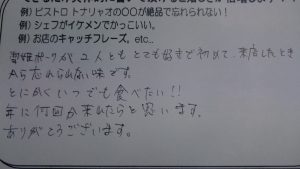 例）ビストロ トナリャオの〇〇が絶品で忘れられない！
例）シェフがイケメンでかっこいい。
例）お店のキャッチフレーズ、etc...
雪姫ポークが2人ともとても好きで初めて、来店したとき
から忘れられない味です。
とにかくいつでも食べたい!!
年に何回か来れたらと思います。
ありがとうございます。